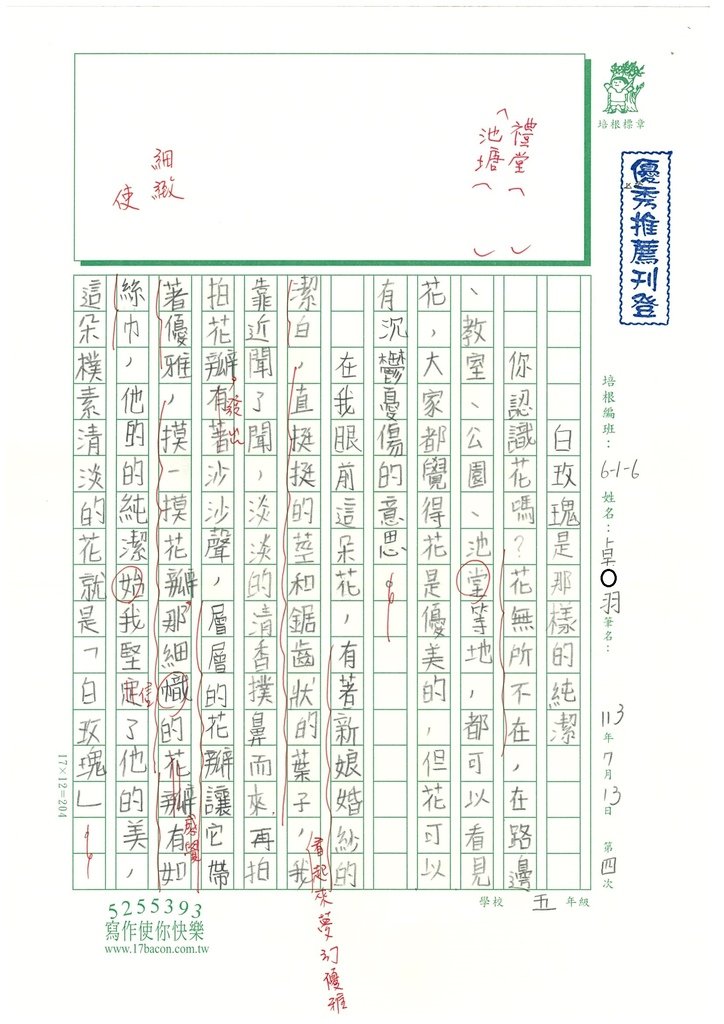 培根標章
優秀推薦刊登
培根編班：6-1-6 姓名：卓○羽 筆名： 113年7月13日 第四次
禮堂（ ）
池塘（ ）
細緻
使
白玫瑰是那樣的純潔
你認識花嗎？花無所不在，在路邊
、教室、公園、池堂等地，都可以看見
花，大家都覺得花是優美的，但花可以
有沉鬱憂傷的意思。
在我眼前這朵花，有著新娘婚紗的
潔白，直挺挺的莖和鋸齒狀的葉子，我
看起來夢幻優雅
靠近聞了聞，淡淡的清香撲鼻而來，再拍
拍花瓣，有著沙沙聲，層層的花瓣讓它帶
發出
著優雅，摸一摸花瓣，那細幟的花瓣有如
感覺
絲巾，他的的純潔始我堅定了他的美，
信
這朵樸素清淡的花就是「白玫瑰」。
17×12=204
學校 五 年級
5255393
寫作使你快樂
www.17bacon.com.tw